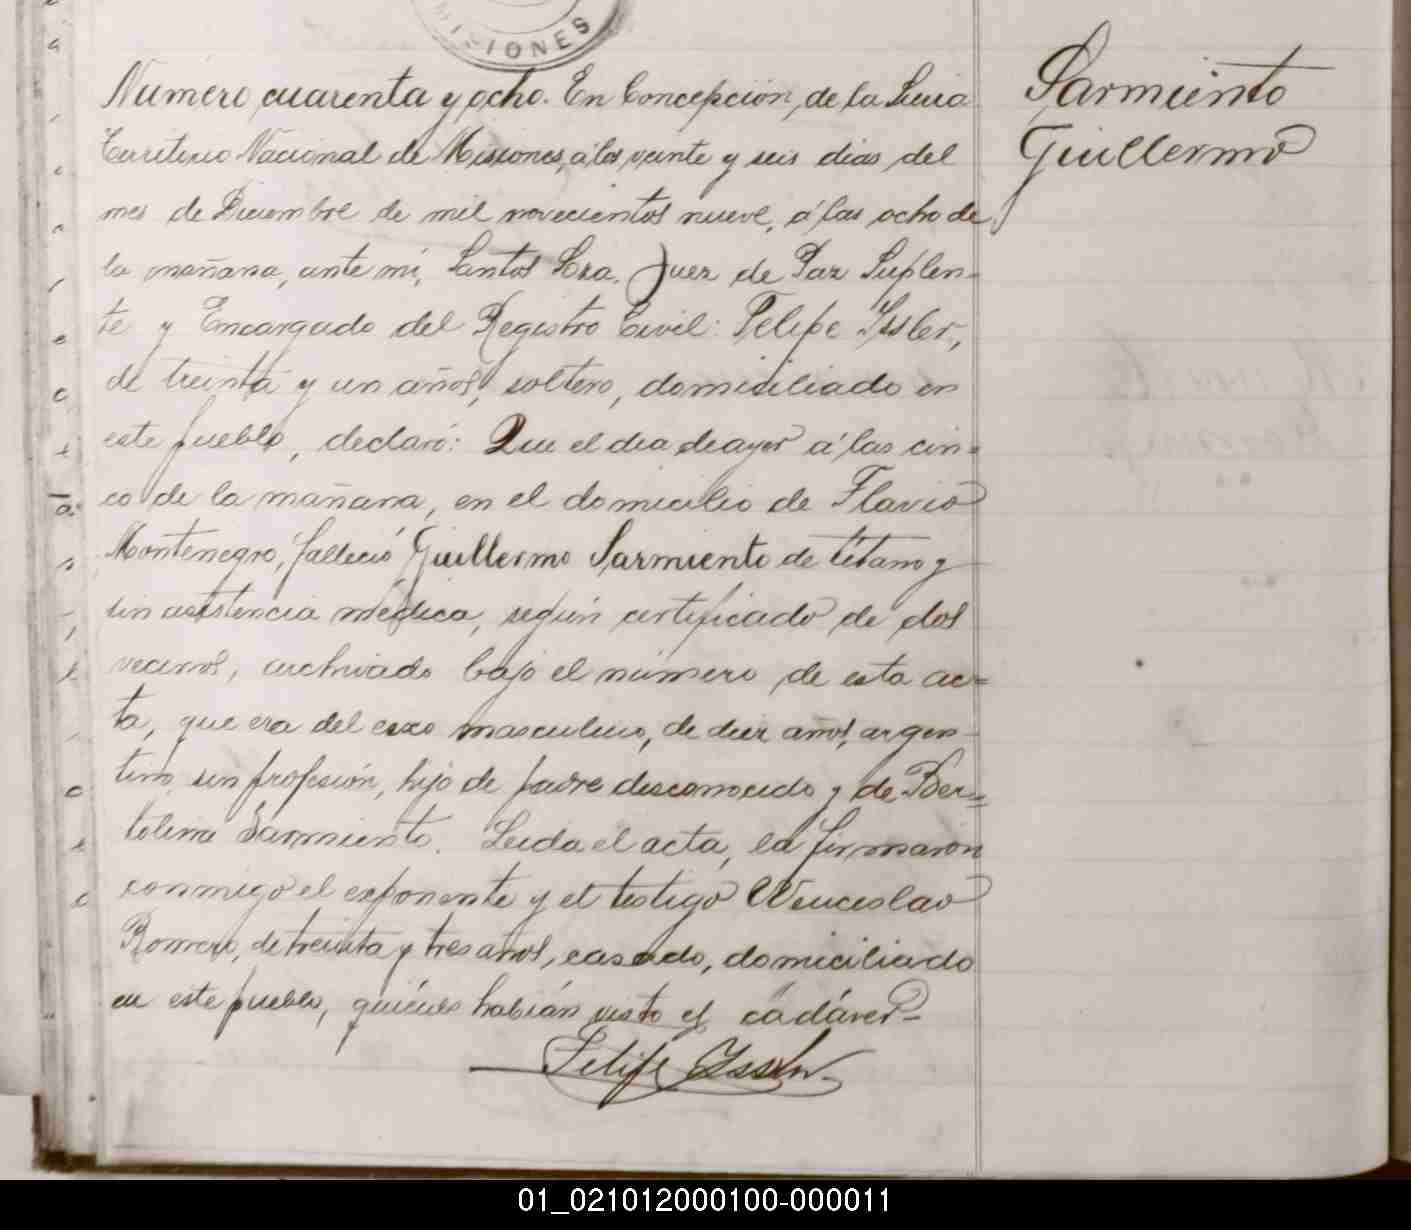 MISIONES
Numero cuarenta y ocho. En Concepción, de la Sierra
Territorio Nacional de Misiones, á los veinte y seis dias del
mes de Diciembre de mil novecientos nueve, á las ocho de
la mañana, ante mí, Santos Lra. Juez de Paz Suplen-
te y Encargado del Registro Civil: Felipe Issler,
de treinta y un años, soltero, domiciliado en
este pueblo, declaró: Que el dia de ayer á las cin-
co de la mañana, en el domicilio de Flavio
Montenegro, falleció Guillermo Sarmiento de tétano y
sin asistencia médica, según certificado de dos
vecinos, archivado bajo el número de esta ac-
ta, que era del sexo masculino, de diez años, argen-
tino, sin profesión, hijo de padre desconocido y de Ber-
tolina Sarmiento. Leida el acta, la firmaron
conmigo el exponente y el testigo Wenceslao
Romero, de treinta y tres años, casado, domiciliado
en este pueblo, quiénes habían visto el cadáver-
Felipe Issler
Sarmiento
Guillermo
01_021012000100-000011